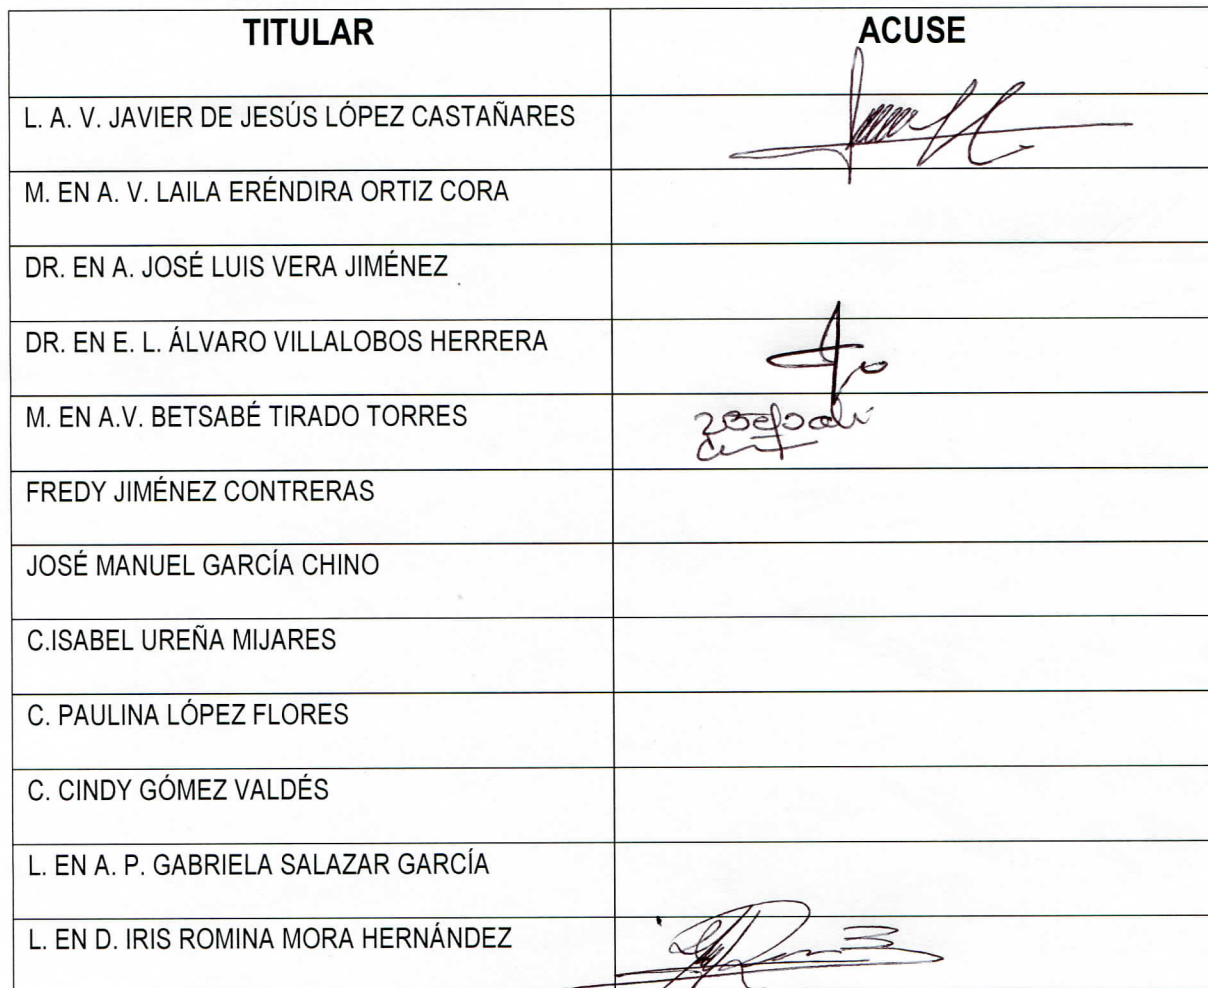 TITULAR ACUSE
L. A. V. JAVIER DE JESÚS LÓPEZ CASTAÑARES
M. EN A. V. LAILA ERÉNDIRA ORTIZ CORA
DR. EN A. JOSÉ LUIS VERA JIMÉNEZ
DR. EN E. L. ÁLVARO VILLALOBOS HERRERA
M. EN A.V. BETSABÉ TIRADO TORRES
FREDY JIMÉNEZ CONTRERAS
JOSÉ MANUEL GARCÍA CHINO
C.ISABEL UREÑA MIJARES
C. PAULINA LÓPEZ FLORES
C. CINDY GÓMEZ VALDÉS
L. EN A. P. GABRIELA SALAZAR GARCÍA
L. EN D. IRIS ROMINA MORA HERNÁNDEZ